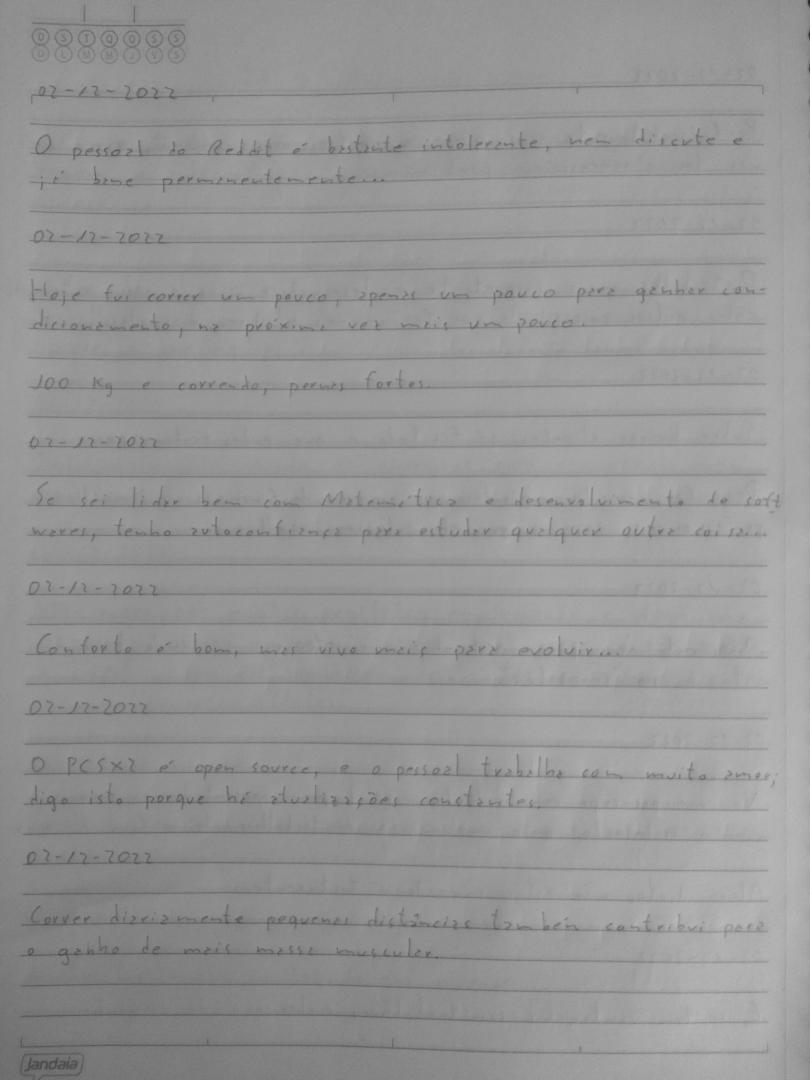 D S T Q Q S S
D L M M J V S
02-12-2022
O pessoal do Reddit é bastante intolerante, nem discute e
já bane permanentemente...
02-12-2022
Hoje fui correr um pouco, apenas um pouco para ganhar con-
dicionamento, na próxima vez mais um pouco.
100 Kg e correndo, pernas fortes.
02-12-2022
Se sei lidar bem com Matemática e desenvolvimento de soft
wares, tenho autoconfiança para estudar qualquer outra coisa...
02-12-2022
Conforto é bom, mas vivo mais para evoluir...
02-12-2022
O PCSX2 é open source, e o pessoal trabalha com muito amor;
digo isto porque há atualizações constantes.
02-12-2022
Correr diariamente pequenas distâncias também contribui para
o ganho de mais massa muscular.
Jandaia